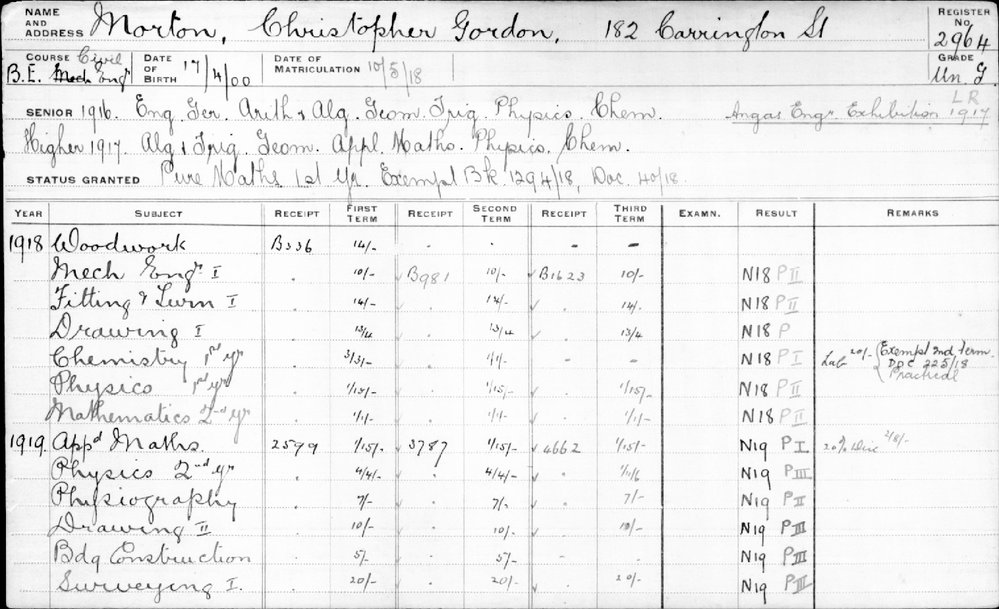 NAME AND ADDRESS Morton, Christopher Gordon, 182 Carrington St REGISTER No. 2964
COURSE Civil B.E. Mech Engr DATE OF BIRTH 17/4/00 DATE OF MATRICULATION 10/5/18 GRADE Un. G
LR
SENIOR 1916. Eng. Ger. Arith & Alg. Geom. Trig. Physics. Chem. Angas Engr. Exhibition 1917
Higher 1917. Alg & Trig. Geom. Appl. Maths. Physics. Chem.
STATUS GRANTED Pure Maths 1st Yr. Exempt Bk. 1294/18, Doc. 40/18.
YEAR SUBJECT RECEIPT FIRST TERM RECEIPT SECOND TERM RECEIPT THIRD TERM EXAMN. RESULT REMARKS
1918 Woodwork B336 14/- . - - -
Mech Engr I . 10/- B981 10/- B1623 10/- N18 P II
Fitting & Turn I . 14/- . 14/- . 14/- N18 P II
Drawing I . 13/4 . 13/4 . 13/4 N18 P
Chemistry 1st yr . 3/3/- . 1/1/- - - N18 P I Lab 20/- (Exempt 2nd term Doc 225/18 Practical
Physics 1st yr . 1/15/- . 1/15/- . 1/15/- N18 P II
Mathematics 2nd yr . 1/1/- . 1/1/- . 1/1/- N18 P II
1919 Appd Maths. 2599 1/15/- 3787 1/15/- 4662 1/15/- N19 P I 20% Disc 2/8/-
Physics 2nd yr . 4/4/- . 4/4/- . N19 P III
Physiography . 7/- . 7/- . 7/- N19 P II
Drawing II . 10/- . 10/- . 10/- N19 P III
Bdg Construction . 5/- . 5/- . N19 P III
Surveying I. . 20/- . 20/- . 20/- N19 P III